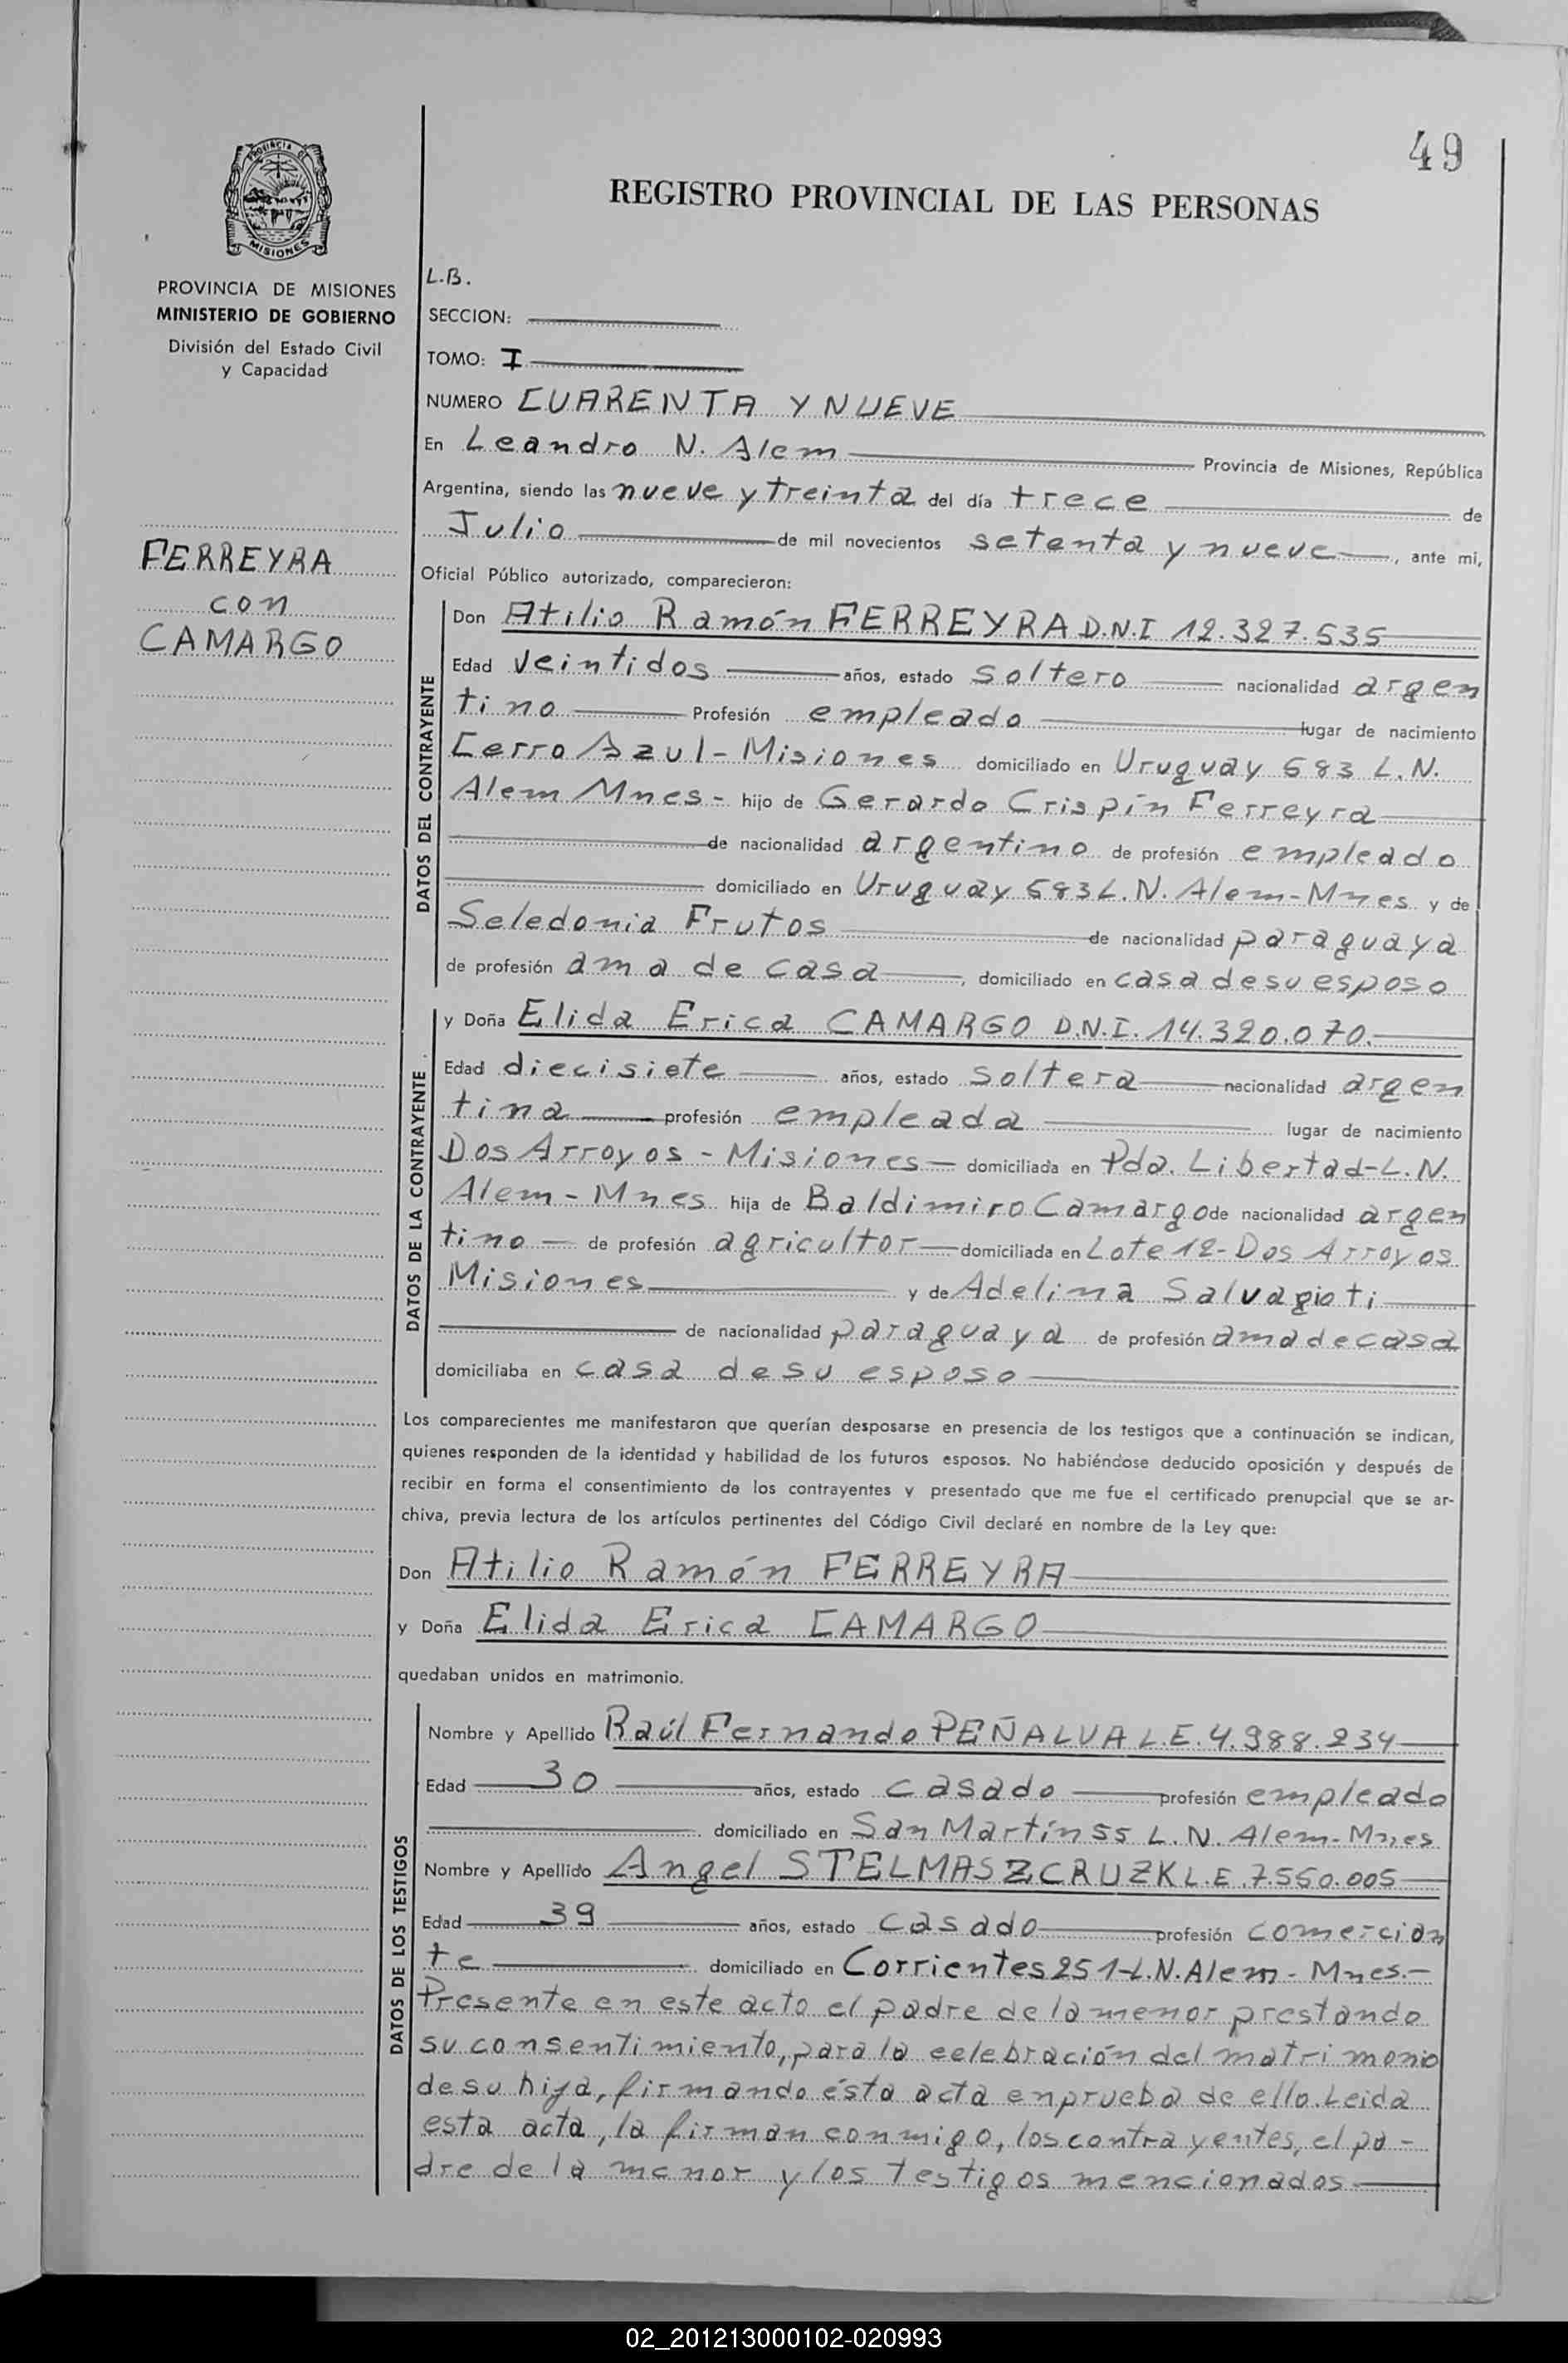 49
REGISTRO PROVINCIAL DE LAS PERSONAS
PROVINCIA DE
MISIONES
PROVINCIA DE MISIONES
MINISTERIO DE GOBIERNO
División del Estado Civil
y Capacidad
FERREYRA
con
CAMARGO
L.B.
SECCION:
TOMO: I
NUMERO CUARENTA Y NUEVE
En Leandro N. Alem Provincia de Misiones, República
Argentina, siendo las nueve y treinta del día trece de
Julio de mil novecientos setenta y nueve, ante mi,
Oficial Público autorizado, comparecieron:
DATOS DEL CONTRAYENTE
Don Atilio Ramón FERREYRA D.N.I 12.327.535
Edad veintidos años, estado soltero nacionalidad argen
tino Profesión empleado lugar de nacimiento
Cerro Azul - Misiones domiciliado en Uruguay 683 L.N.
Alem Mnes - hijo de Gerardo Crispín Ferreyra
de nacionalidad argentino de profesión empleado
domiciliado en Uruguay 683 L.N. Alem - Mnes y de
Seledonia Frutos de nacionalidad paraguaya
de profesión ama de casa, domiciliado en casa de su esposo
DATOS DE LA CONTRAYENTE
y Doña Elida Erica CAMARGO D.N.I. 14.320.070.
Edad diecisiete años, estado soltera nacionalidad argen
tina profesión empleada lugar de nacimiento
Dos Arroyos - Misiones - domiciliada en Pda. Libertad - L.N.
Alem - Mnes hija de Baldimiro Camargo de nacionalidad argen
tino - de profesión agricultor - domiciliada en Lote 12 - Dos Arroyos
Misiones y de Adelima Salvagioti
de nacionalidad paraguaya de profesión ama de casa
domiciliaba en casa de su esposo
Los comparecientes me manifestaron que querían desposarse en presencia de los testigos que a continuación se indican,
quienes responden de la identidad y habilidad de los futuros esposos. No habiéndose deducido oposición y después de
recibir en forma el consentimiento de los contrayentes y presentado que me fue el certificado prenupcial que se ar-
chiva, previa lectura de los artículos pertinentes del Código Civil declaré en nombre de la Ley que:
Don Atilio Ramón FERREYRA
y Doña Elida Erica CAMARGO
quedaban unidos en matrimonio.
DATOS DE LOS TESTIGOS
Nombre y Apellido Raúl Fernando PEÑALVA L.E. 4.988.234
Edad 30 años, estado casado profesión empleado
domiciliado en San Martín 55 L.N. Alem - Mnes
Nombre y Apellido Angel STELMASZCRUZK L.E. 7.550.005
Edad 39 años, estado casado profesión comercian
te domiciliado en Corrientes 251 - L.N. Alem - Mnes. -
Presente en este acto el padre de la menor prestando
su consentimiento, para la celebración del matrimonio
de su hija, firmando ésta acta en prueba de ello. Leida
esta acta, la firman conmigo, los contrayentes, el pa -
dre de la menor y los testigos mencionados
02_201213000102-020993